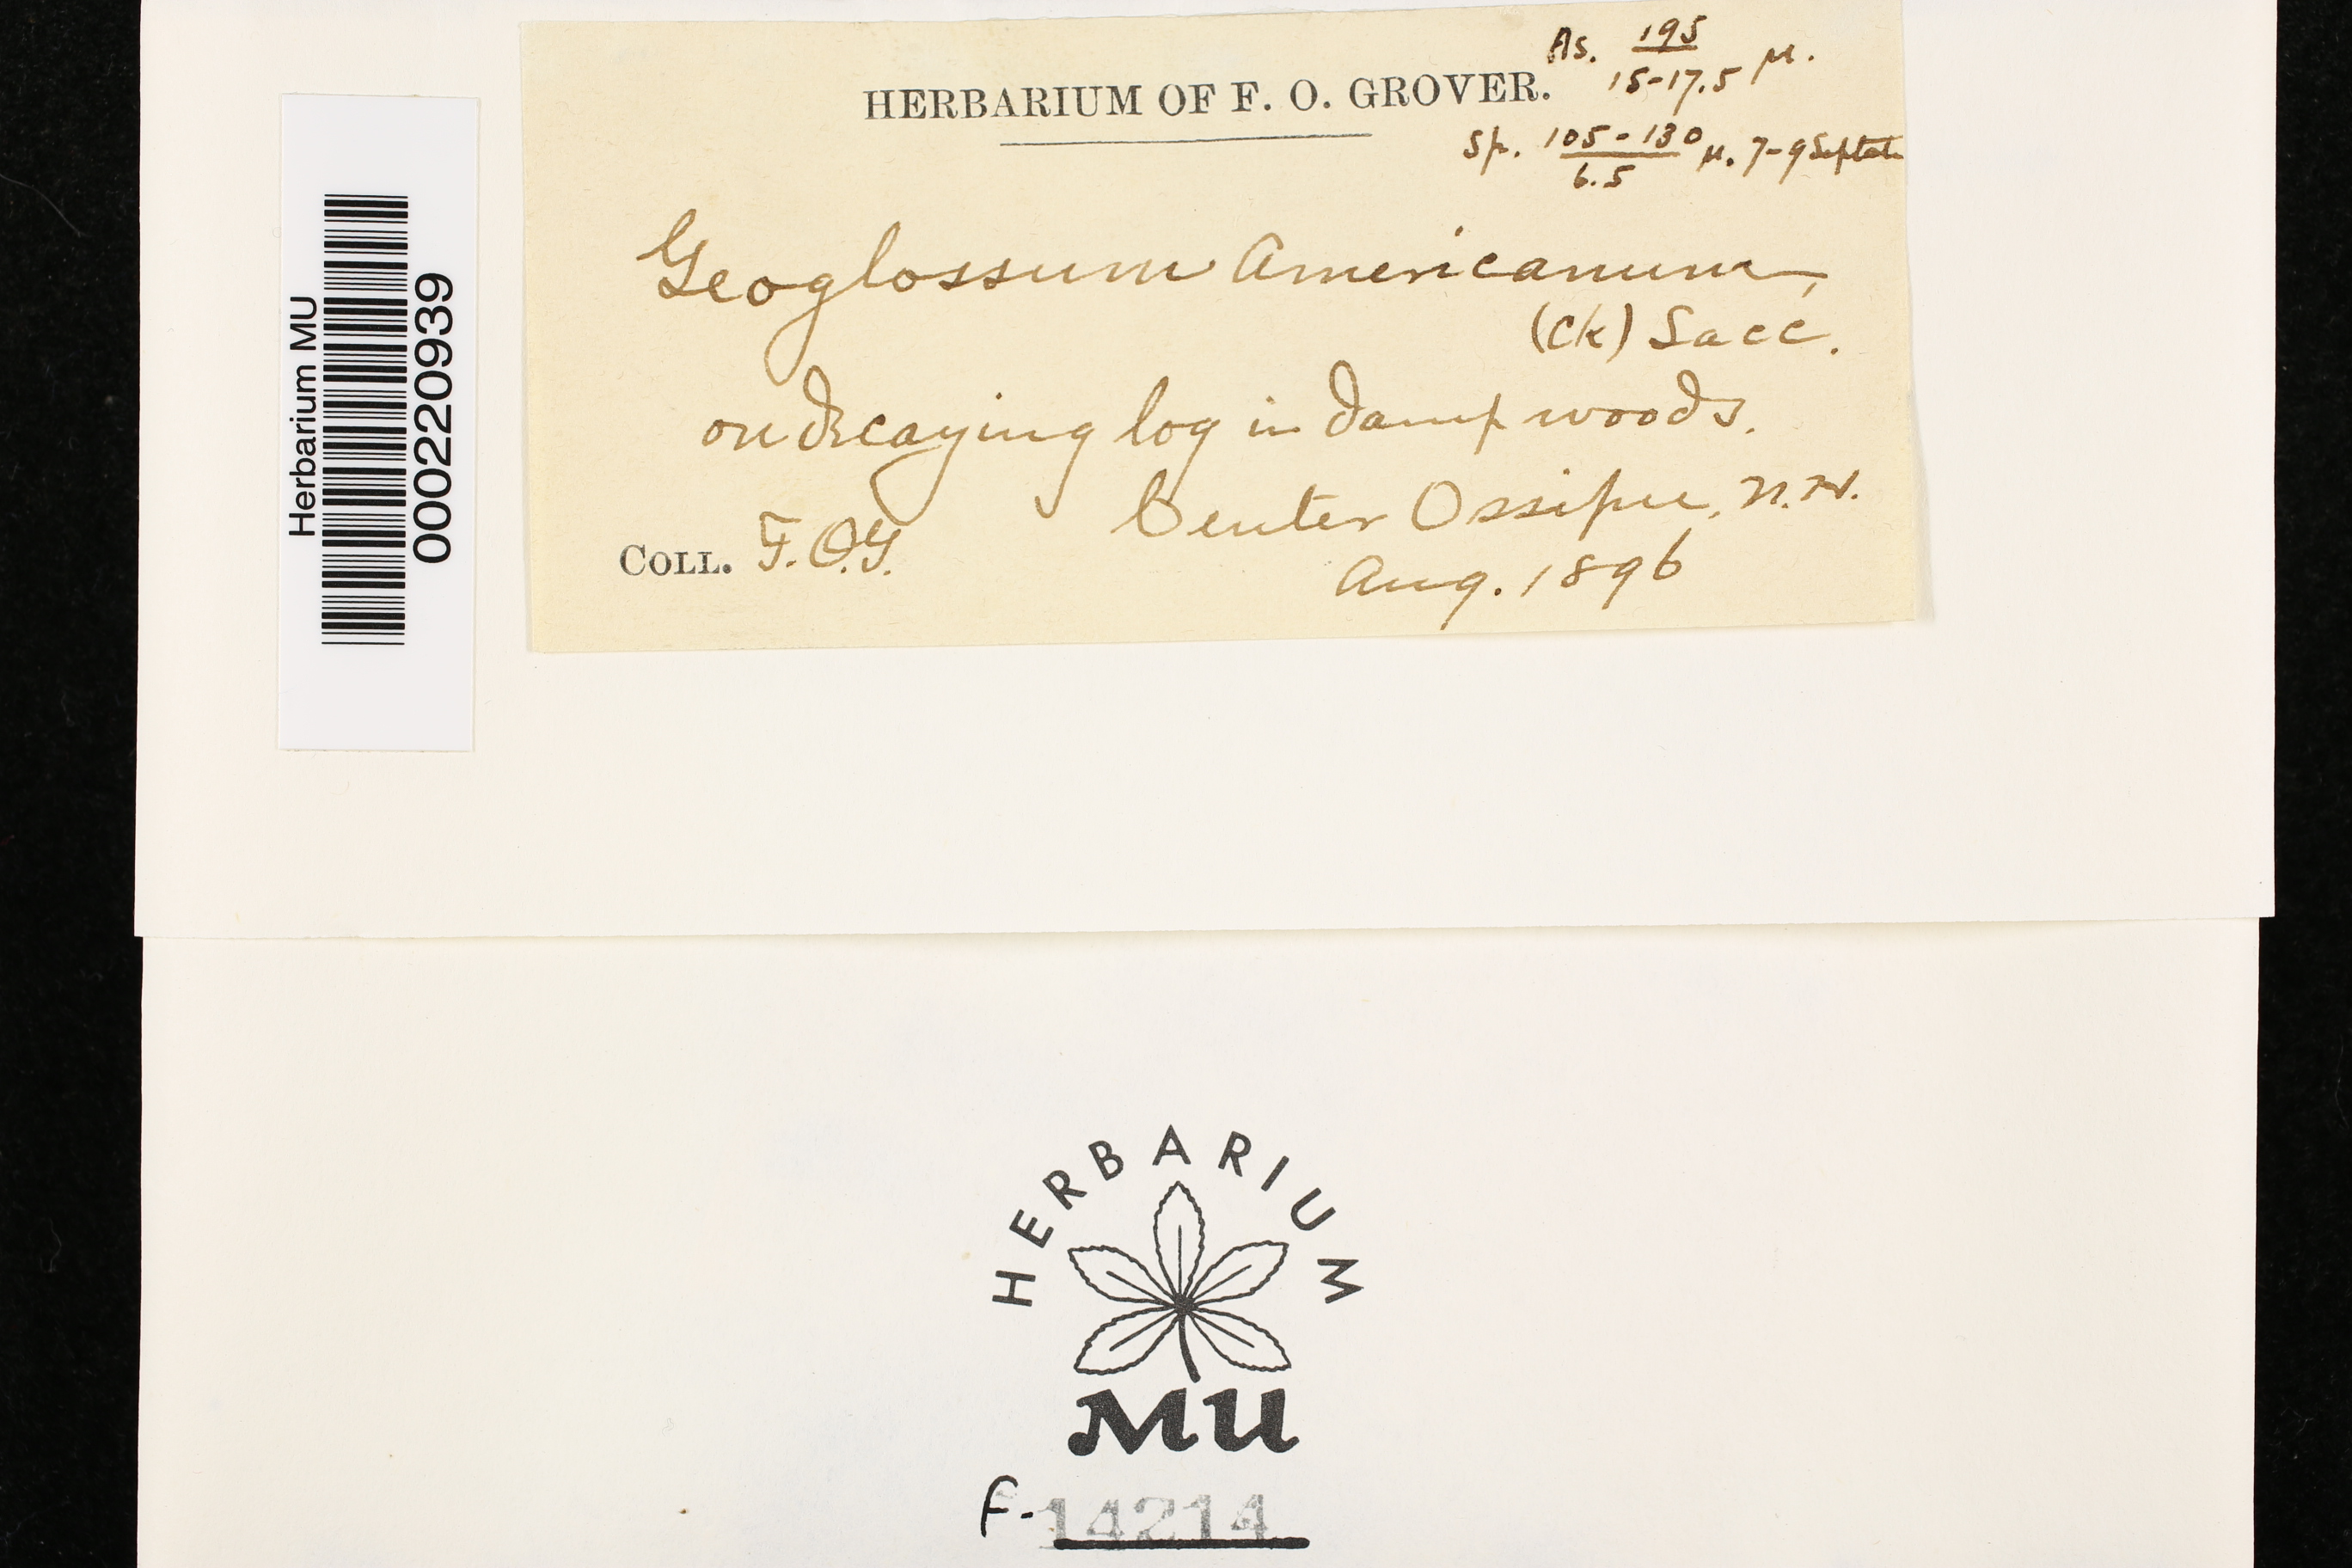 As. 195 / 15-17.5 µ.
HERBARIUM OF F. O. GROVER.
Sp. 105-130 / 6.5 µ. 7-9 Septate
Geoglossum Americanum,
(Ck) Sacc.
on decaying log in damp woods.
Center Ossipee, N.H.
COLL. F.O.G.
Aug. 1896
Herbarium MU
000220939
HERBARIUM
MU
F-14214